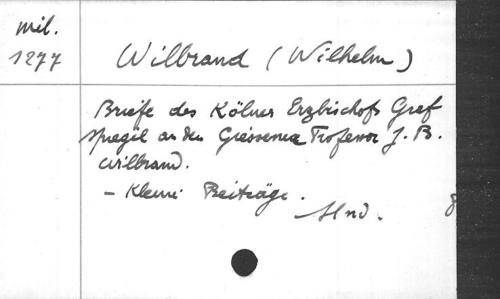 mil.
1277
Wilbrand (Wilhelm)
Briefe des Kölner Erzbischofs Graf
Spiegel an den Giessener Professor J. B.
Wilbrand.
- Kleine Beiträge.